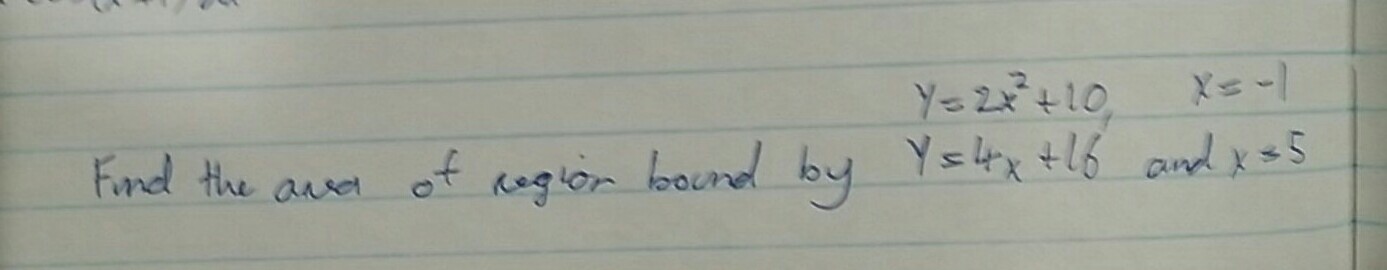 y=2x²+10, x=-1
Find the area of region bound by y=4x+16 and x=5